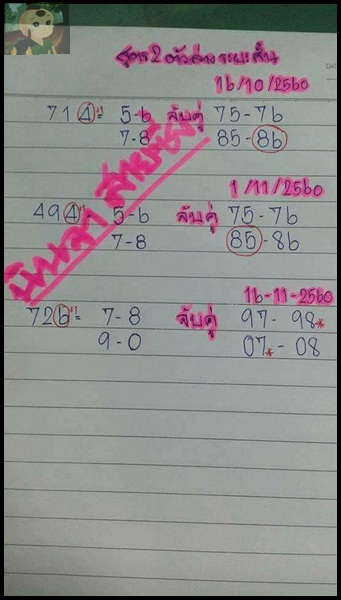 สูตร 2 ตัวล่าง ระยะสั้น
16/10/2560
714+1 5-6 จับคู่ 75-76
7-8 85-86
1/11/2560
494+1 5-6 จับคู่ 75-76
7-8 85-86
16-11-2560
726+1 7-8 จับคู่ 97-98*
9-0 07*-08